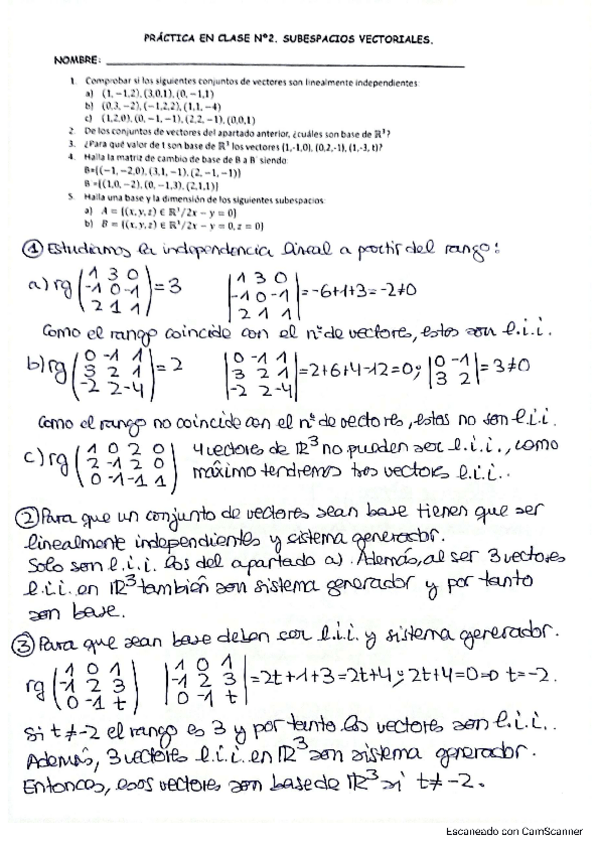 PRÁCTICA EN CLASE Nº2. SUBESPACIOS VECTORIALES.
NOMBRE: ____________________
1. Comprobar si los siguientes conjuntos de vectores son linealmente independientes
a) (1,-1,2), (3,0,1), (0,-1,1)
b) (0,3,-2), (-1,2,2), (1,1,-4)
c) (1,2,0), (0,-1,-1), (2,2,-1), (0,0,1)
2. De los conjuntos de vectores del apartado anterior, ¿cuáles son base de ℝ³?
3. ¿Para qué valor de t son base de ℝ³ los vectores (1,-1,0), (0,2,-1), (1,-3,t)?
4. Halla la matriz de cambio de base de B a B' siendo:
B={(-1,-2,0), (3,1,-1), (2,-1,-1)}
B'={(1,0,-2), (0,-1,3), (2,1,1)}
5. Halla una base y la dimensión de los siguientes subespacios:
a) A = {(x,y,z) ∈ ℝ³/2x - y = 0}
b) B = {(x,y,z) ∈ ℝ³/2x - y = 0, z = 0}
① Estudiamos la independencia lineal a partir del rango:
a) rg (1 3 0 / -1 0 -1 / 2 1 1) = 3 |1 3 0 / -1 0 -1 / 2 1 1| = -6+1+3 = -2 ≠ 0
Como el rango coincide con el nº de vectores, estos son l.i.i.
b) rg (0 -1 1 / 3 2 1 / -2 2 -4) = 2 |0 -1 1 / 3 2 1 / -2 2 -4| = 2+6+4-12 = 0; |0 -1 / 3 2| = 3 ≠ 0
Como el rango no coincide con el nº de vectores, estos no son l.i.i.
c) rg (1 0 2 0 / 2 -1 2 0 / 0 -1 -1 1) 4 vectores de ℝ³ no pueden ser l.i.i., como
máximo tendremos tres vectores l.i.i..
② Para que un conjunto de vectores sean base tienen que ser
linealmente independientes y sistema generador.
Solo son l.i.i. los del apartado a). Además, al ser 3 vectores
l.i.i. en ℝ³ también son sistema generador y por tanto
son base.
③ Para que sean base deben ser l.i.i. y sistema generador.
rg (1 0 1 / -1 2 3 / 0 -1 t) |1 0 1 / -1 2 3 / 0 -1 t| = 2t+1+3 = 2t+4; 2t+4=0 => t=-2.
Si t ≠ -2 el rango es 3 y por tanto los vectores son l.i.i..
Además, 3 vectores l.i.i. en ℝ³ son sistema generador.
Entonces, esos vectores son base de ℝ³ si t ≠ -2.
Escaneado con CamScanner